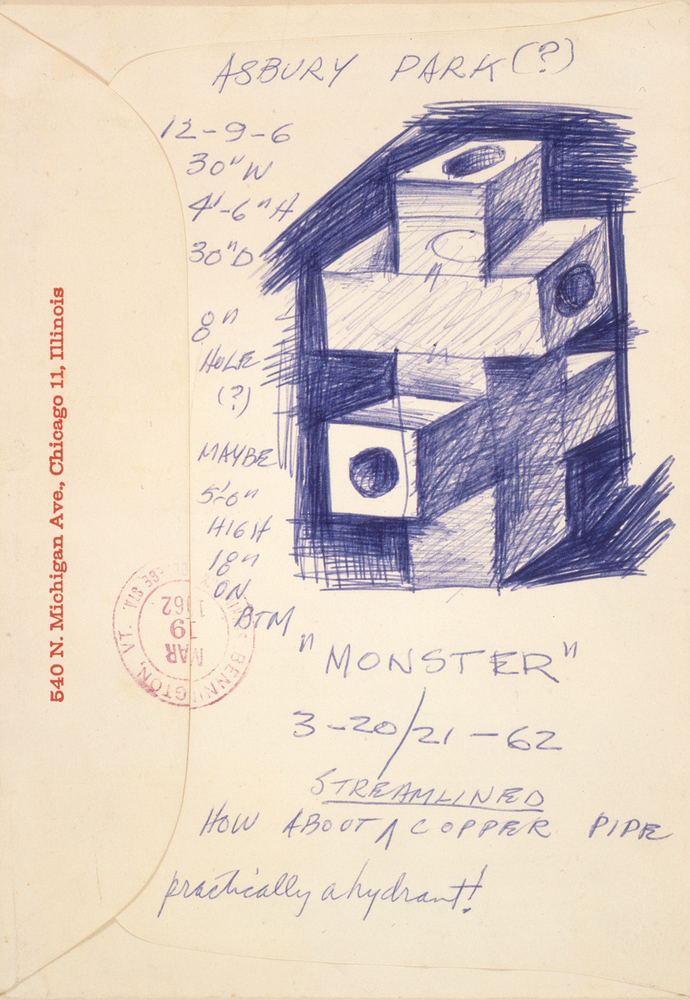 ASBURY PARK (?)
12-9-6
30"W
4'-6"H
30"D
8"
HOLE
(?)
MAYBE
5'-6"
HIGH
18"
ON
BTM
"MONSTER"
3-20/21-62
STREAMLINED
HOW ABOUT / COPPER PIPE
practically a hydrant!
540 N. Michigan Ave., Chicago 11, Illinois
BENNINGTON, VT.
MAR
19
1962
STA.